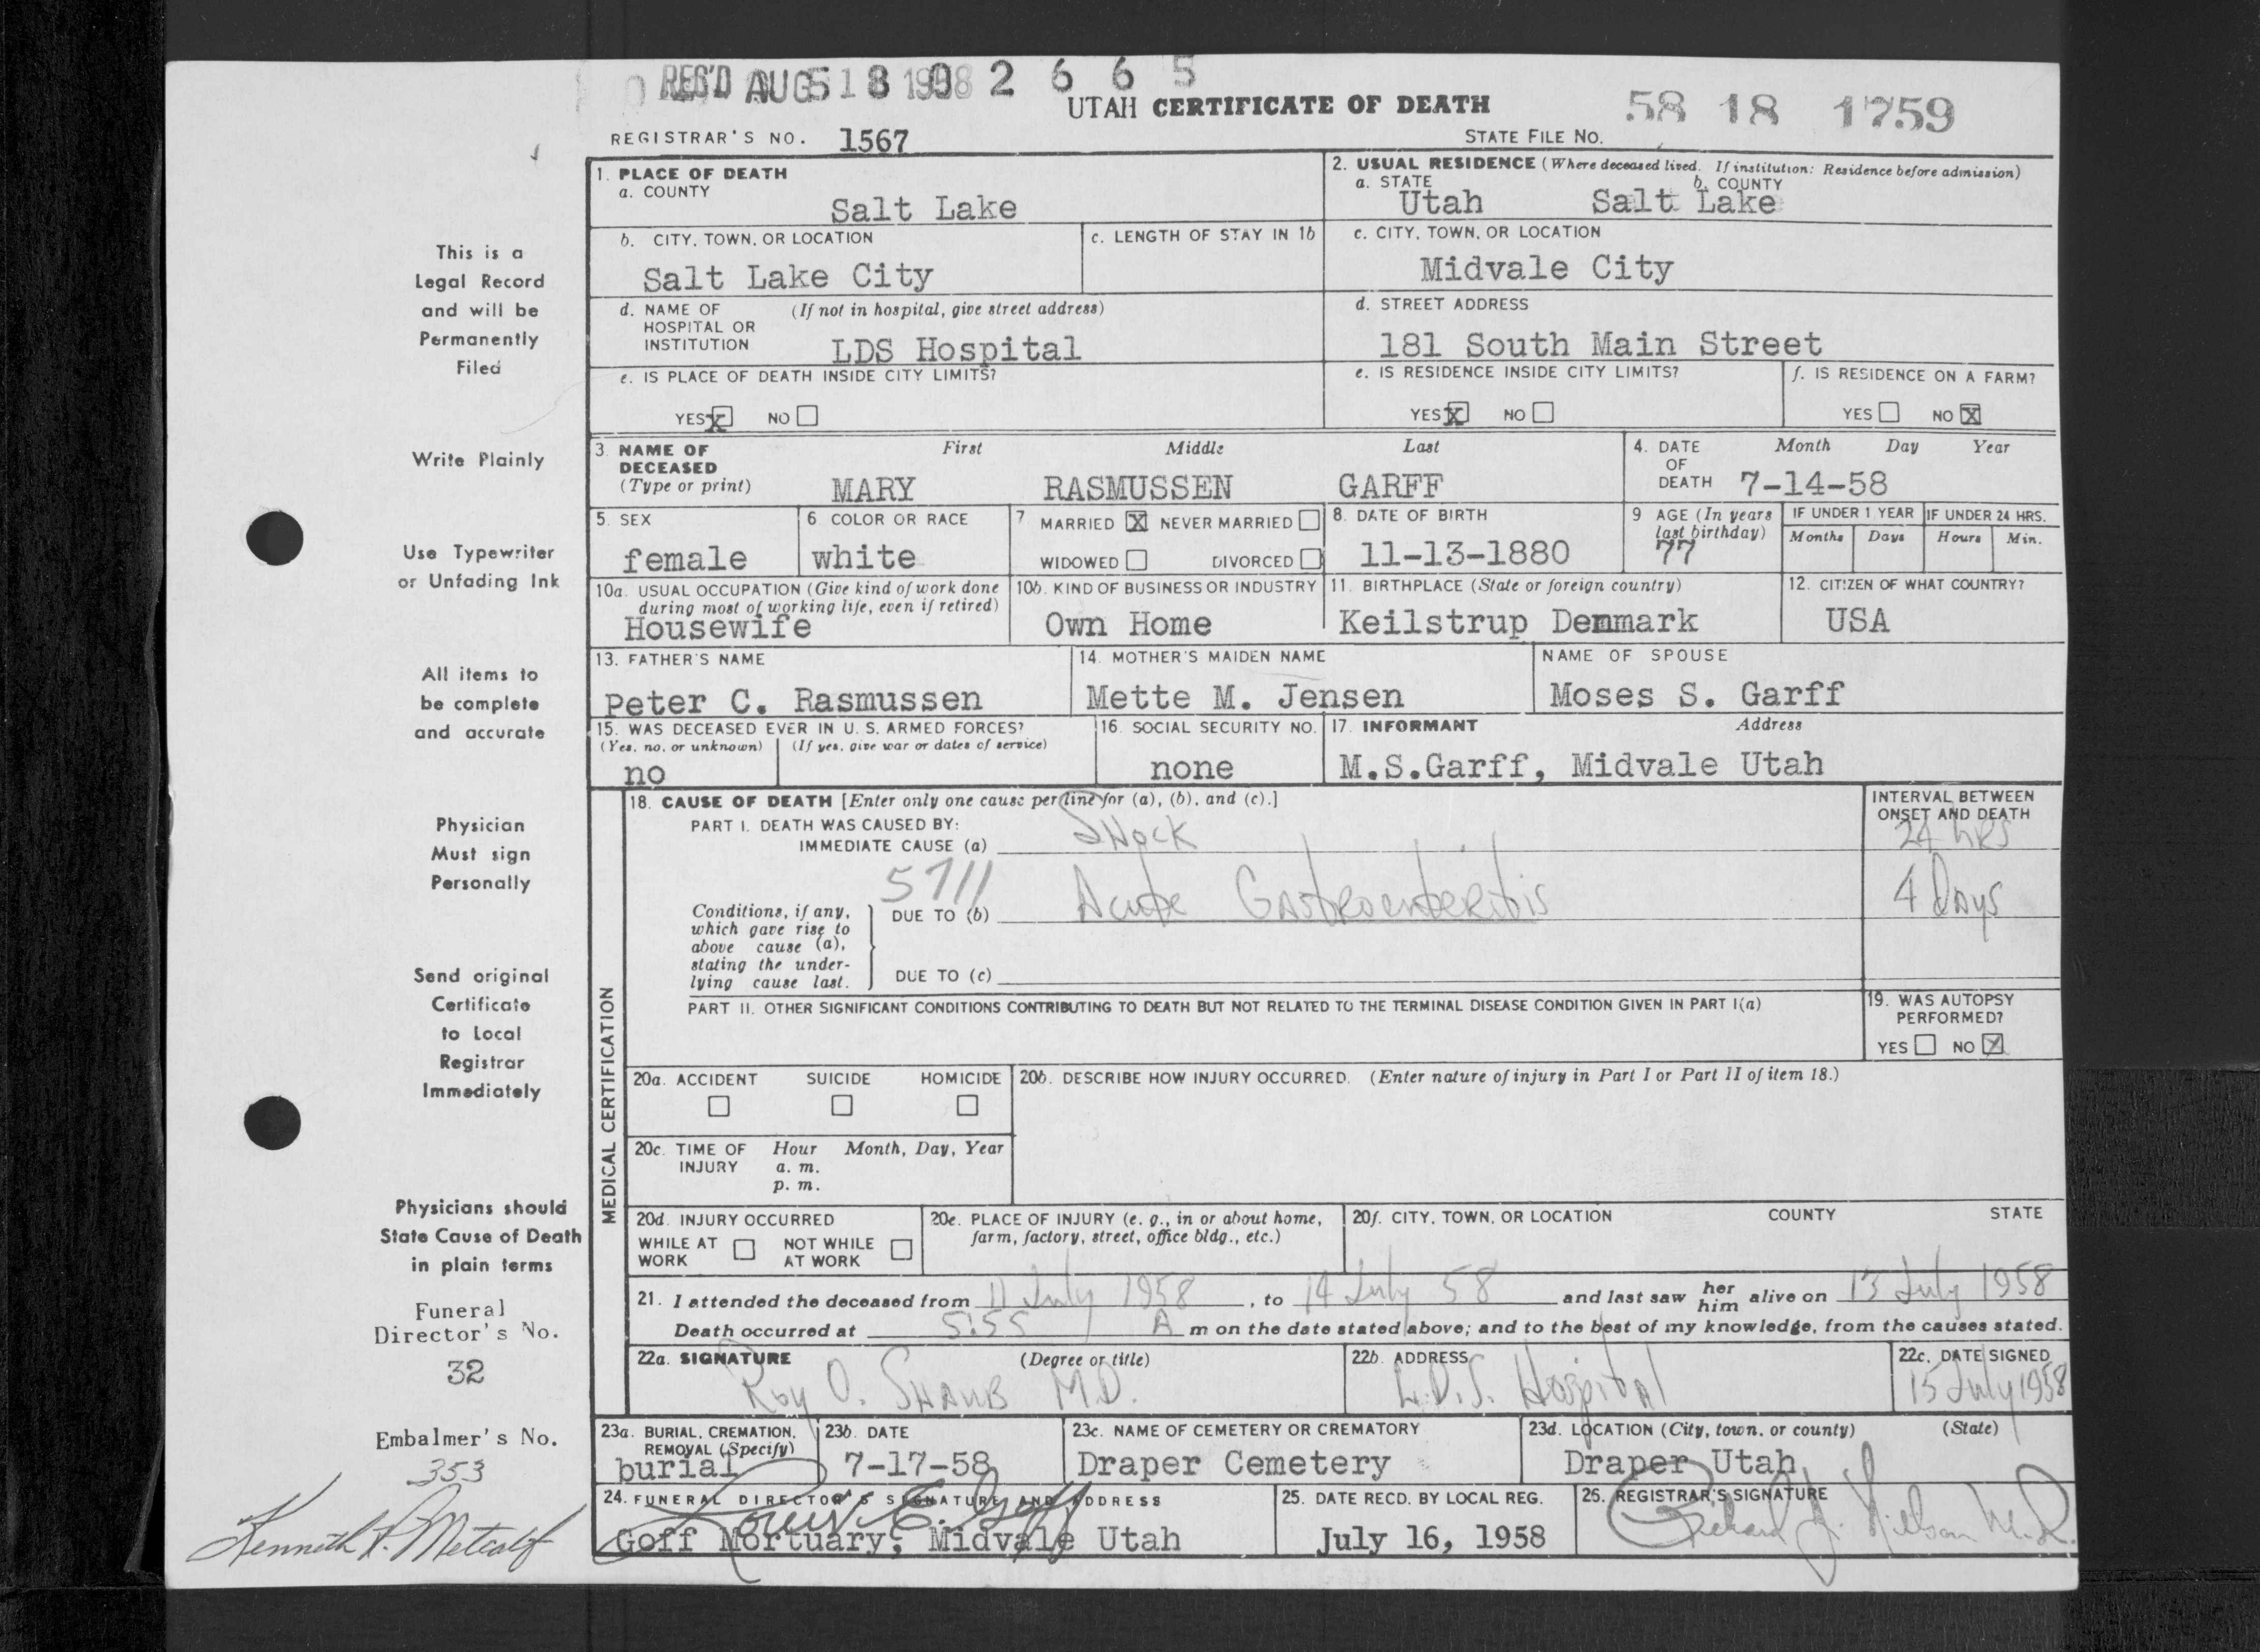 REG'D AUG 5 1958 1 8 0 2 6 6 5
UTAH CERTIFICATE OF DEATH
58 18 1759
REGISTRAR'S NO. 1567
STATE FILE NO.
1. PLACE OF DEATH
a. COUNTY
Salt Lake
2. USUAL RESIDENCE (Where deceased lived. If institution: Residence before admission)
a. STATE b. COUNTY
Utah Salt Lake
b. CITY, TOWN, OR LOCATION
Salt Lake City
c. LENGTH OF STAY IN 1b
c. CITY, TOWN, OR LOCATION
Midvale City
d. NAME OF (If not in hospital, give street address)
HOSPITAL OR
INSTITUTION LDS Hospital
d. STREET ADDRESS
181 South Main Street
e. IS PLACE OF DEATH INSIDE CITY LIMITS?
YES X NO
e. IS RESIDENCE INSIDE CITY LIMITS?
YES X NO
f. IS RESIDENCE ON A FARM?
YES NO X
3. NAME OF DECEASED (Type or print)
First Middle Last
MARY RASMUSSEN GARFF
4. DATE OF DEATH Month Day Year
7-14-58
5. SEX
female
6 COLOR OR RACE
white
7 MARRIED X NEVER MARRIED
WIDOWED DIVORCED
8. DATE OF BIRTH
11-13-1880
9 AGE (In years last birthday)
77
IF UNDER 1 YEAR
Months Days
IF UNDER 24 HRS.
Hours Min.
10a. USUAL OCCUPATION (Give kind of work done
during most of working life, even if retired)
Housewife
10b. KIND OF BUSINESS OR INDUSTRY
Own Home
11. BIRTHPLACE (State or foreign country)
Keilstrup Denmark
12. CITIZEN OF WHAT COUNTRY?
USA
13. FATHER'S NAME
Peter C. Rasmussen
14. MOTHER'S MAIDEN NAME
Mette M. Jensen
NAME OF SPOUSE
Moses S. Garff
15. WAS DECEASED EVER IN U. S. ARMED FORCES?
(Yes, no, or unknown) (If yes, give war or dates of service)
no
16. SOCIAL SECURITY NO.
none
17. INFORMANT Address
M.S.Garff, Midvale Utah
MEDICAL CERTIFICATION
18. CAUSE OF DEATH [Enter only one cause per line for (a), (b), and (c).]
PART I. DEATH WAS CAUSED BY:
IMMEDIATE CAUSE (a) Shock
INTERVAL BETWEEN
ONSET AND DEATH
24 hRS
5711
Conditions, if any,
which gave rise to
above cause (a),
stating the under-
lying cause last.
DUE TO (b) Acute Gastroenteritis
4 Days
DUE TO (c)
PART II. OTHER SIGNIFICANT CONDITIONS CONTRIBUTING TO DEATH BUT NOT RELATED TO THE TERMINAL DISEASE CONDITION GIVEN IN PART I(a)
19. WAS AUTOPSY
PERFORMED?
YES NO X
20a. ACCIDENT SUICIDE HOMICIDE
20b. DESCRIBE HOW INJURY OCCURRED. (Enter nature of injury in Part I or Part II of item 18.)
20c. TIME OF INJURY Hour Month, Day, Year
a. m.
p. m.
20d. INJURY OCCURRED
WHILE AT WORK NOT WHILE AT WORK
20e. PLACE OF INJURY (e. g., in or about home,
farm, factory, street, office bldg., etc.)
20f. CITY, TOWN, OR LOCATION COUNTY STATE
21. I attended the deceased from 11 July 1958, to 14 July 58 and last saw her him alive on 13 July 1958
Death occurred at 5:55 A m on the date stated above; and to the best of my knowledge, from the causes stated.
22a. SIGNATURE (Degree or title)
Roy O. Shaub M.D.
22b. ADDRESS
L.D.S. Hospital
22c. DATE SIGNED
15 July 1958
23a. BURIAL, CREMATION,
REMOVAL (Specify)
burial
23b. DATE
7-17-58
23c. NAME OF CEMETERY OR CREMATORY
Draper Cemetery
23d. LOCATION (City, town, or county) (State)
Draper Utah
24. FUNERAL DIRECTOR'S SIGNATURE AND ADDRESS
Louis E. Goff
Goff Mortuary, Midvale Utah
25. DATE RECD. BY LOCAL REG.
July 16, 1958
26. REGISTRAR'S SIGNATURE
Richard J. Nielson M.D.
This is a
Legal Record
and will be
Permanently
Filed
Write Plainly
Use Typewriter
or Unfading Ink
All items to
be complete
and accurate
Physician
Must sign
Personally
Send original
Certificate
to Local
Registrar
Immediately
Physicians should
State Cause of Death
in plain terms
Funeral
Director's No.
32
Embalmer's No.
353
Kenneth R. Metcalf